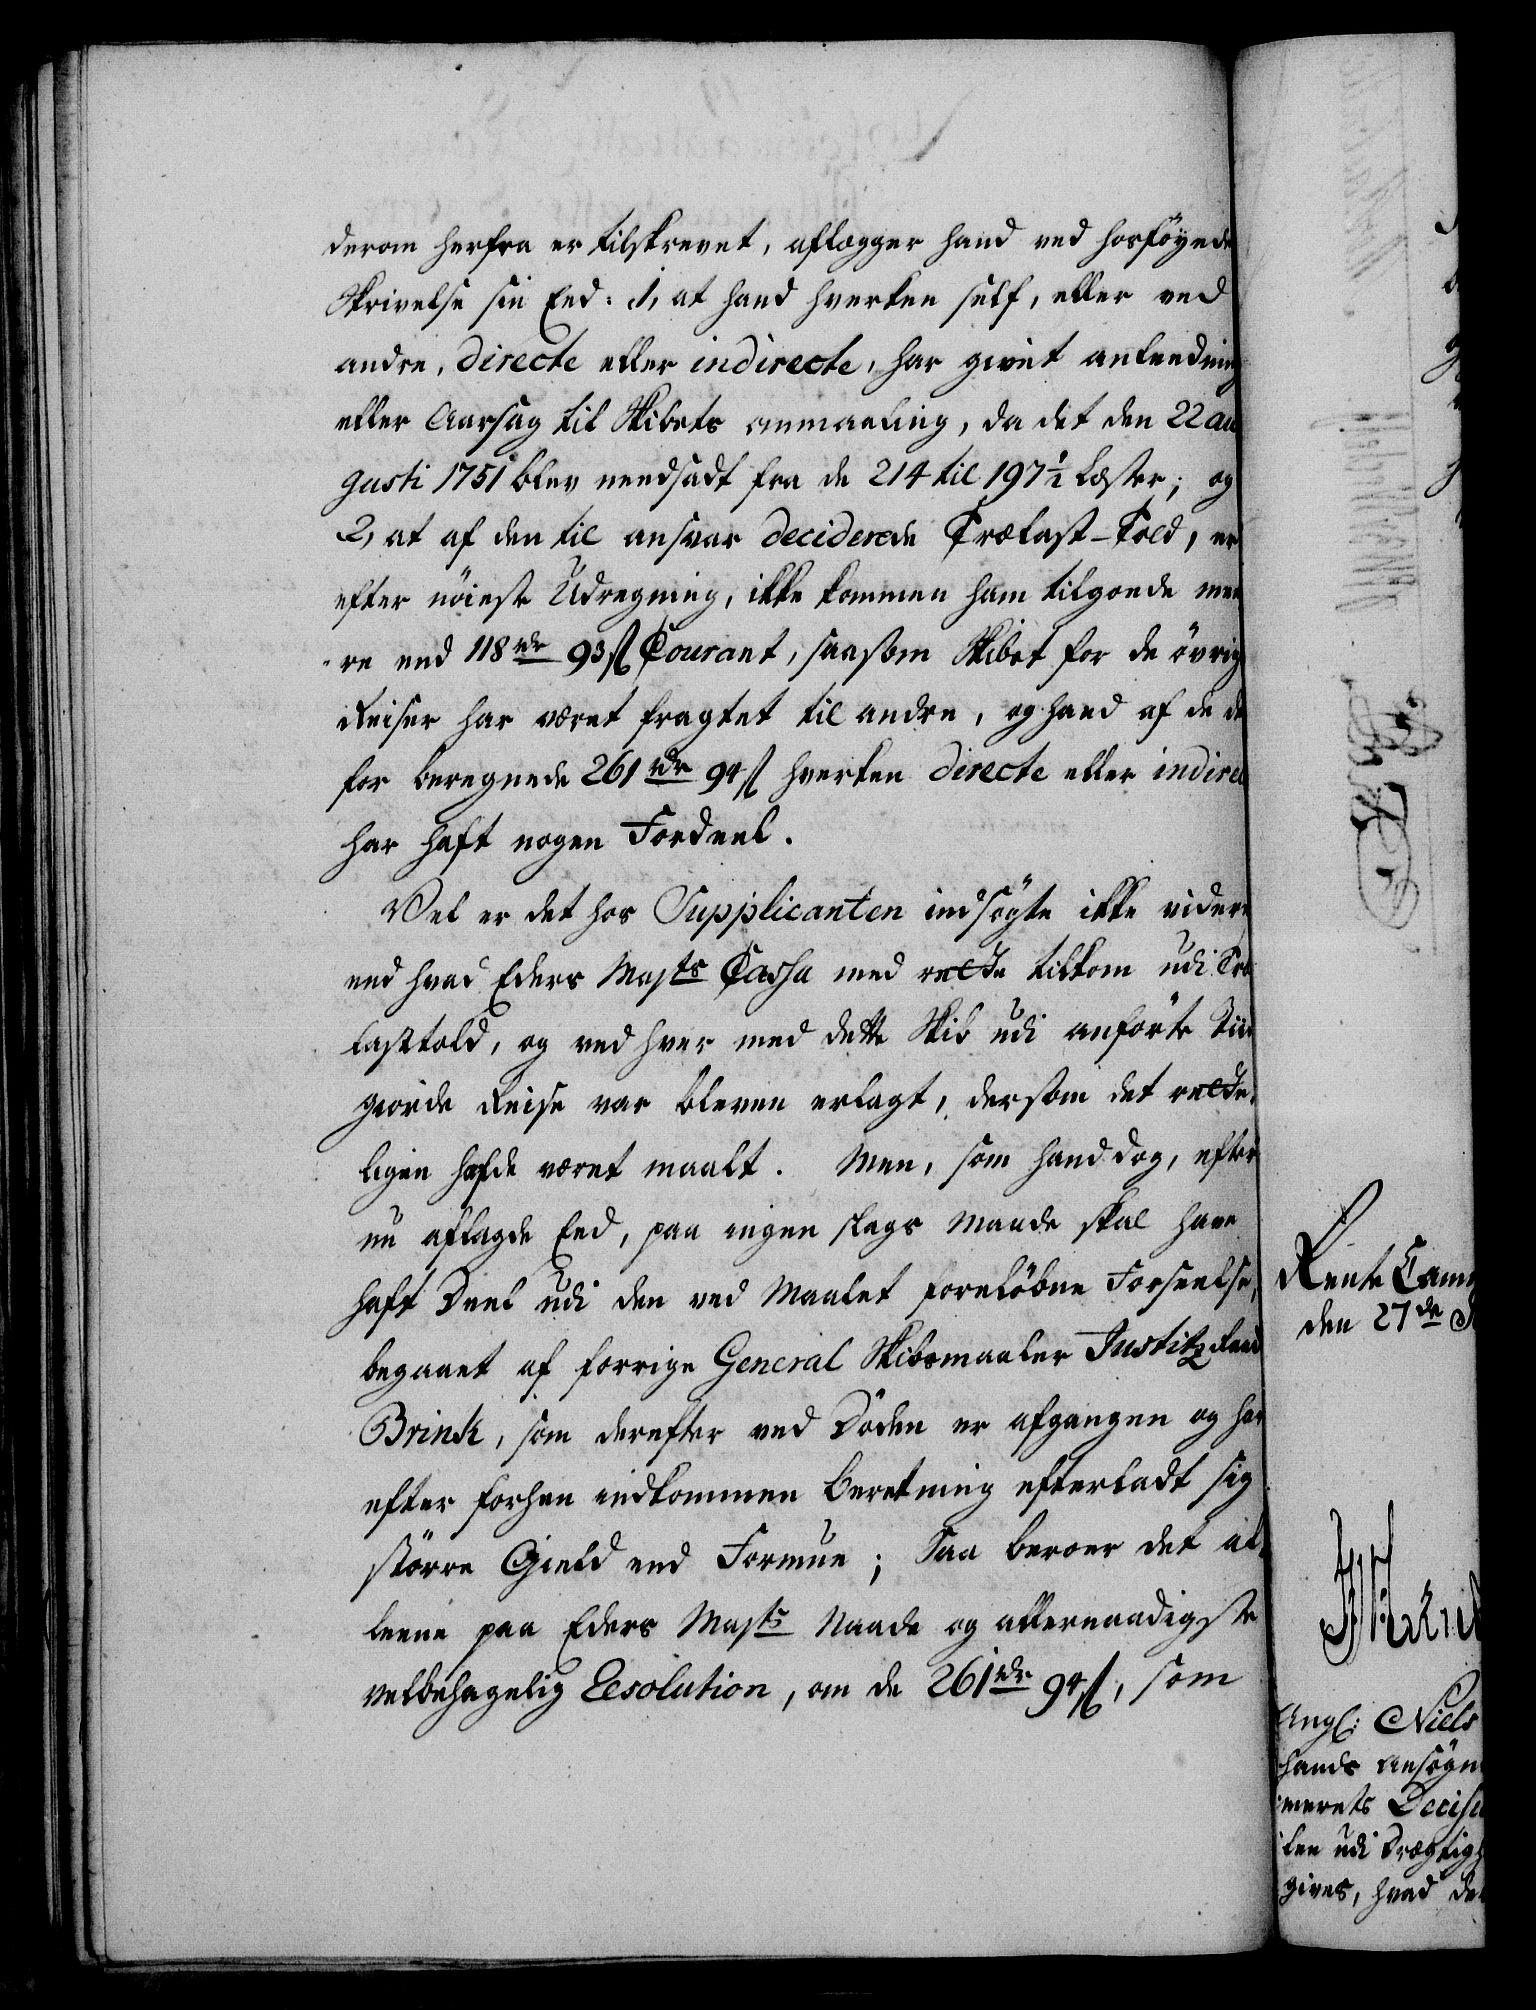 derom herfra er tilskrevet, aflægger hand ved hosföyede
Skrivelse sin Eed: 1, at hand hverken self, eller ved
andre, directe eller indirecte, har givet anledning
eller Aarsag til Skibets ommaaling, da det den 22 au
gusti 1751 blev needsadt fra de 214 til 197½ Læster; og
2, at af den til ansvar deciderede Trælast-Told, er
efter nöieste Udregning, ikke kommen ham tilgode mee
re end 118 rdr 93 ß Courant, saasom Skibet for de övrig
Reiser har været fragtet til andre, og hand af de der
for beregnede 261 rdr 94 ß hverken directe eller indirec
har haft nogen Fordeel.
Vel er det hos Supplicanten indsögte ikke videre
end hvad Eders Majts Cassa med rette tilkom udi Træ
lasttold, og ved hver med dette Skib udi anförte Tiid
giorde Reise var bleven erlagt, dersom det rette
ligen hafde været maalt. Men, som hand dog, efter
nu aflagde Eed, paa ingen slags Maade skal have
haft Deel udi den ved Maalet foreløbne Forseelse,
begaaet af forrige General Skibsmaaler Justitz Raad
Brink, som derefter ved Döden er afgangen og har
efter forhen indkommen Beretning efterladt sig
större Gield end Formue; Saa beroer det al
leene paa Eders Majts Naade og allernaadigste
velbehagelig Resolution, om de 261 rdr 94 ß, som
Rente Cam
den 27de
Angl: Niels
hands Ansögn
merets Decisi
len udi Drægtigh
gives, hvad de